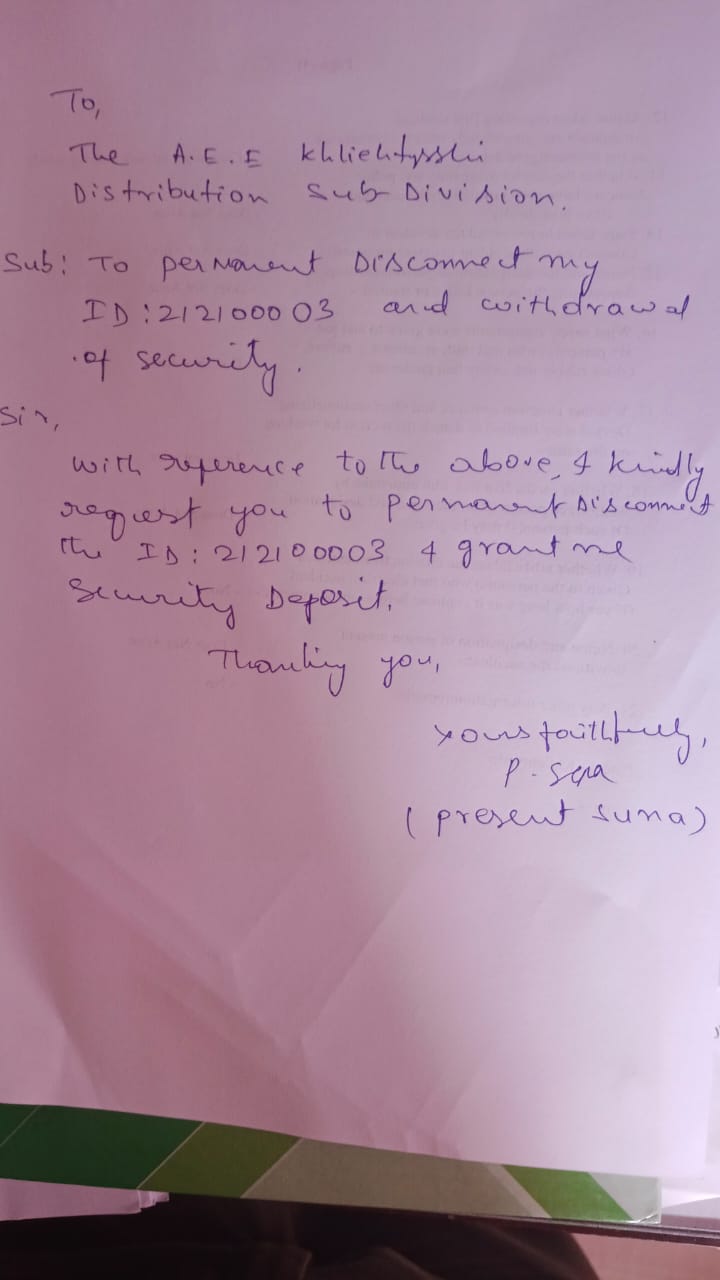 To,
The A.E.E Khliehtyrshi
Distribution Sub Division.
Sub: To permanent Disconnect my
ID:212100003 and withdrawal
of security.
Sir,
With reference to the above, I kindly
request you to permanent Disconnect
the ID: 212100003 & grant me
Security Deposit.
Thanking you,
yours faithfully,
P.
(present suna)